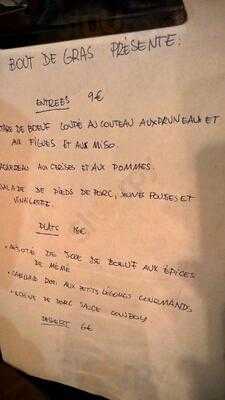 BOUT DE GRAS PRÉSENTE:
ENTREES 9€
TARE DE BOEUF COUPÉ AU COUTEAU AUX PRUNEAUX ET
AUX FIGUES ET AUX MISO.
AQUEREAU AUX CERISES ET AUX POMMES.
SALADE DE PIEDS DE PORC, JEUNES POUSSES ET
VINAIGRETTE.
PLATS 16€
DE JOUE DE BOEUF AUX ÉPICES
DE MÉMÉ
AUX PETITS LÉGUMES GOURMANDS
DE PORC SAUCE COWBOY
DESSERT 6€